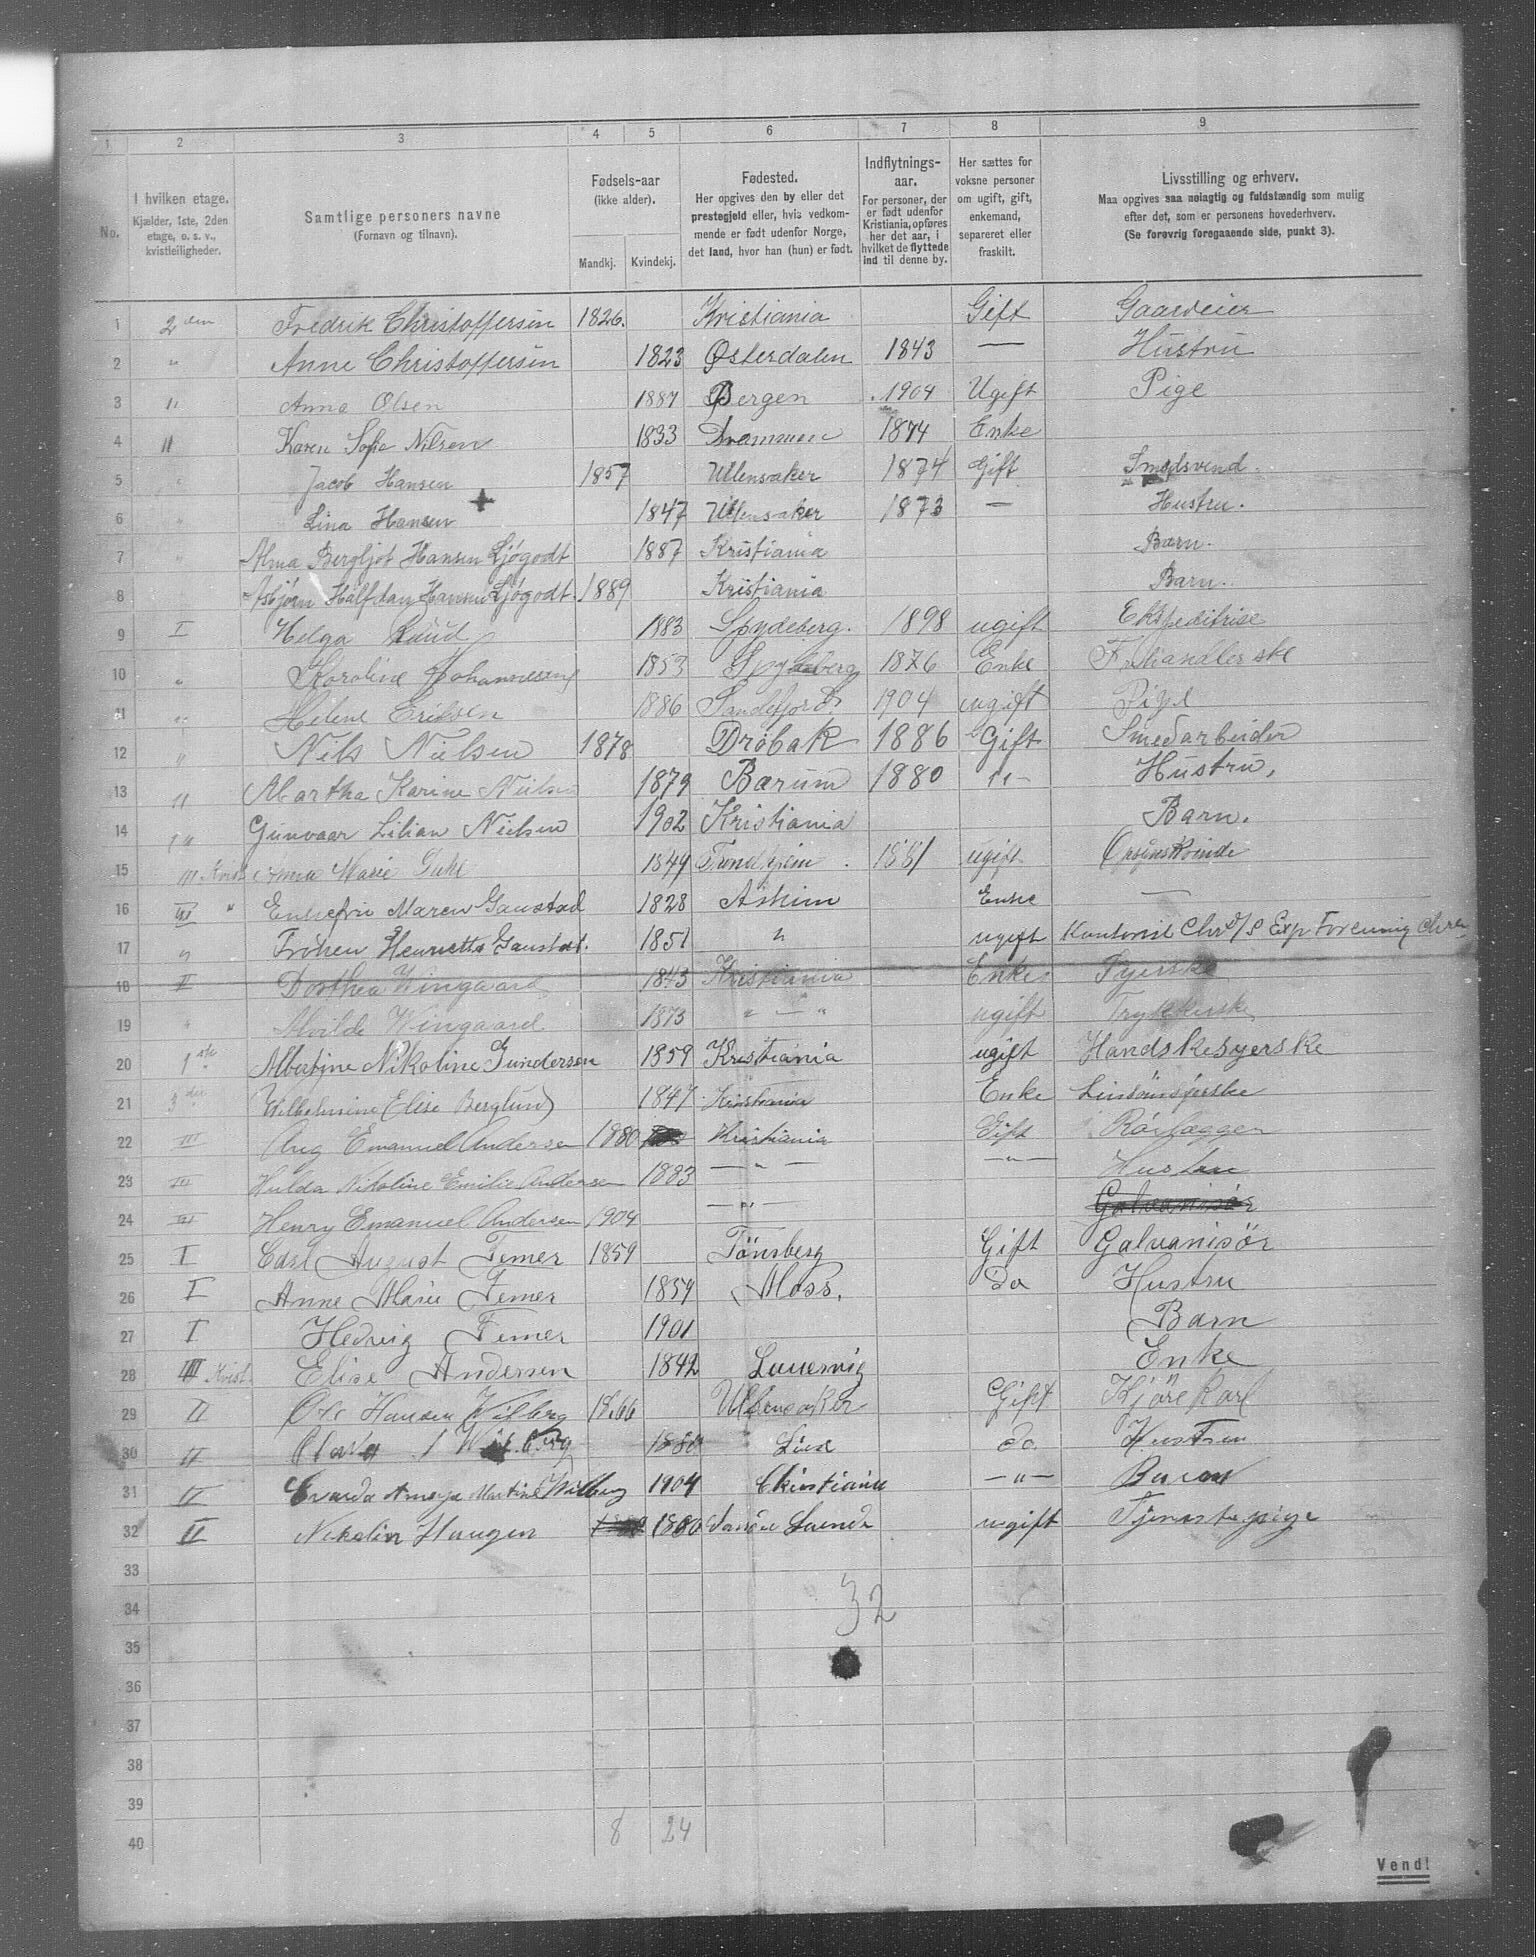 1 2 3 4 5 6 7 8 9
No.
I hvilken etage.
Kjælder, 1ste, 2den
etage, o. s. v.,
kvistleiligheder.
Samtlige personers navne
(Fornavn og tilnavn).
Fødsels-aar
(ikke alder).
Mandkj. Kvindekj.
Fødested.
Her opgives den by eller det
prestegjeld eller, hvis vedkom-
mende er født udenfor Norge,
det land, hvor han (hun) er født.
Indflytnings-
aar.
For personer, der
er født udenfor
Kristiania, opføres
her det aar, i
hvilket de flyttede
ind til denne by.
Her sættes for
voksne personer
om ugift, gift,
enkemand,
separeret eller
fraskilt.
Livsstilling og erhverv.
Maa opgives saa nøiagtig og fuldstændig som mulig
efter det, som er personens hovederhverv.
(Se forøvrig foregaaende side, punkt 3).
1 2den Fredrik Christoffersen 1826. Kristiania Gift Gaardeier
2 " Anne Christoffersen 1823 Østerdalen 1843 — Hustru
3 " Anna Olsen 1887 Bergen 1904 Ugift Pige
4 " Karen Sofie Nilsen 1833 Drammen 1874 Enke
5 " Jacob Hansen 1857 Ullensaker 1874 Gift Smedsvend.
6 " Lina Hansen 1847 Ullensaker 1873 — Hustru.
7 " Alma Bergljot Hansen Ljøgodt 1887 Kristiania Barn.
8 Asbjørn Halfdan Hansen Ljøgodt. 1889 Kristiania Barn.
9 I Helga Ruud 1883 Spydeberg. 1898 ugift Ekspeditrise
10 " Karoline Johannesen 1853 Spydeberg 1876 Enke
11 " Helene Eriksen 1886 Sandefjord 1904 ugift Pige
12 " Nils Nielsen 1878 Drøbak 1886 Gift Smedarbeider
13 " Martha Karine Nielsen 1879 Bærum 1880 " - Hustru.
14 " Gunvaar Lilian Nielsen 1902 Kristiania Barn.
15 III Kvist Marie 1849 1881 ugift
16 III " Enkefru Maren Gaustad 1828 Askim Enke —
17 " Frøken Henriette Gaustad. 1851 " ugift Kontorist Chr
18 II Dorthea Wingaard 1843 Kristiania Enke Syerske
19 " Alvilde Wingaard 1873 " — " ugift Trykkerske
20 1ste Albertine Nikoline Gundersen 1859 Kristiania ugift Handskesyerske
21 3die Wilhelmine (Elise Berglund) 1847 Kristiania Enke Linsømsyerske
22 III Aug Emanuel Andersen 1880 Kristiania Gift Rørlægger
23 III Hulda Nikoline Emilie Andersen 1883 — " — — " — Hustru
24 III Henry Emanuel Andersen 1904 — " — Galvanisør
25 I Carl August Femer 1859 Tönsberg Gift Galvanisör
26 I Anne Marie Femer 1859 Moss. Do Hustru
27 I Hedvig Femer 1901 Barn
28 III Kvist. Elise Andersen 1842 Laurvig Enke
29 II Ole Hansen Wilberg 1866 Ullensaker Gift Kjörekarl
30 II Wilberg 1880 Lier do Hustru
31 II Martine Wilberg 1904 Christiania — " — Barn
32 II Nikolin Haugen 1880 Søndre Land ugift Tjenestepige
33
34
35
36
37
38
39
40
32
8 24
Vend!